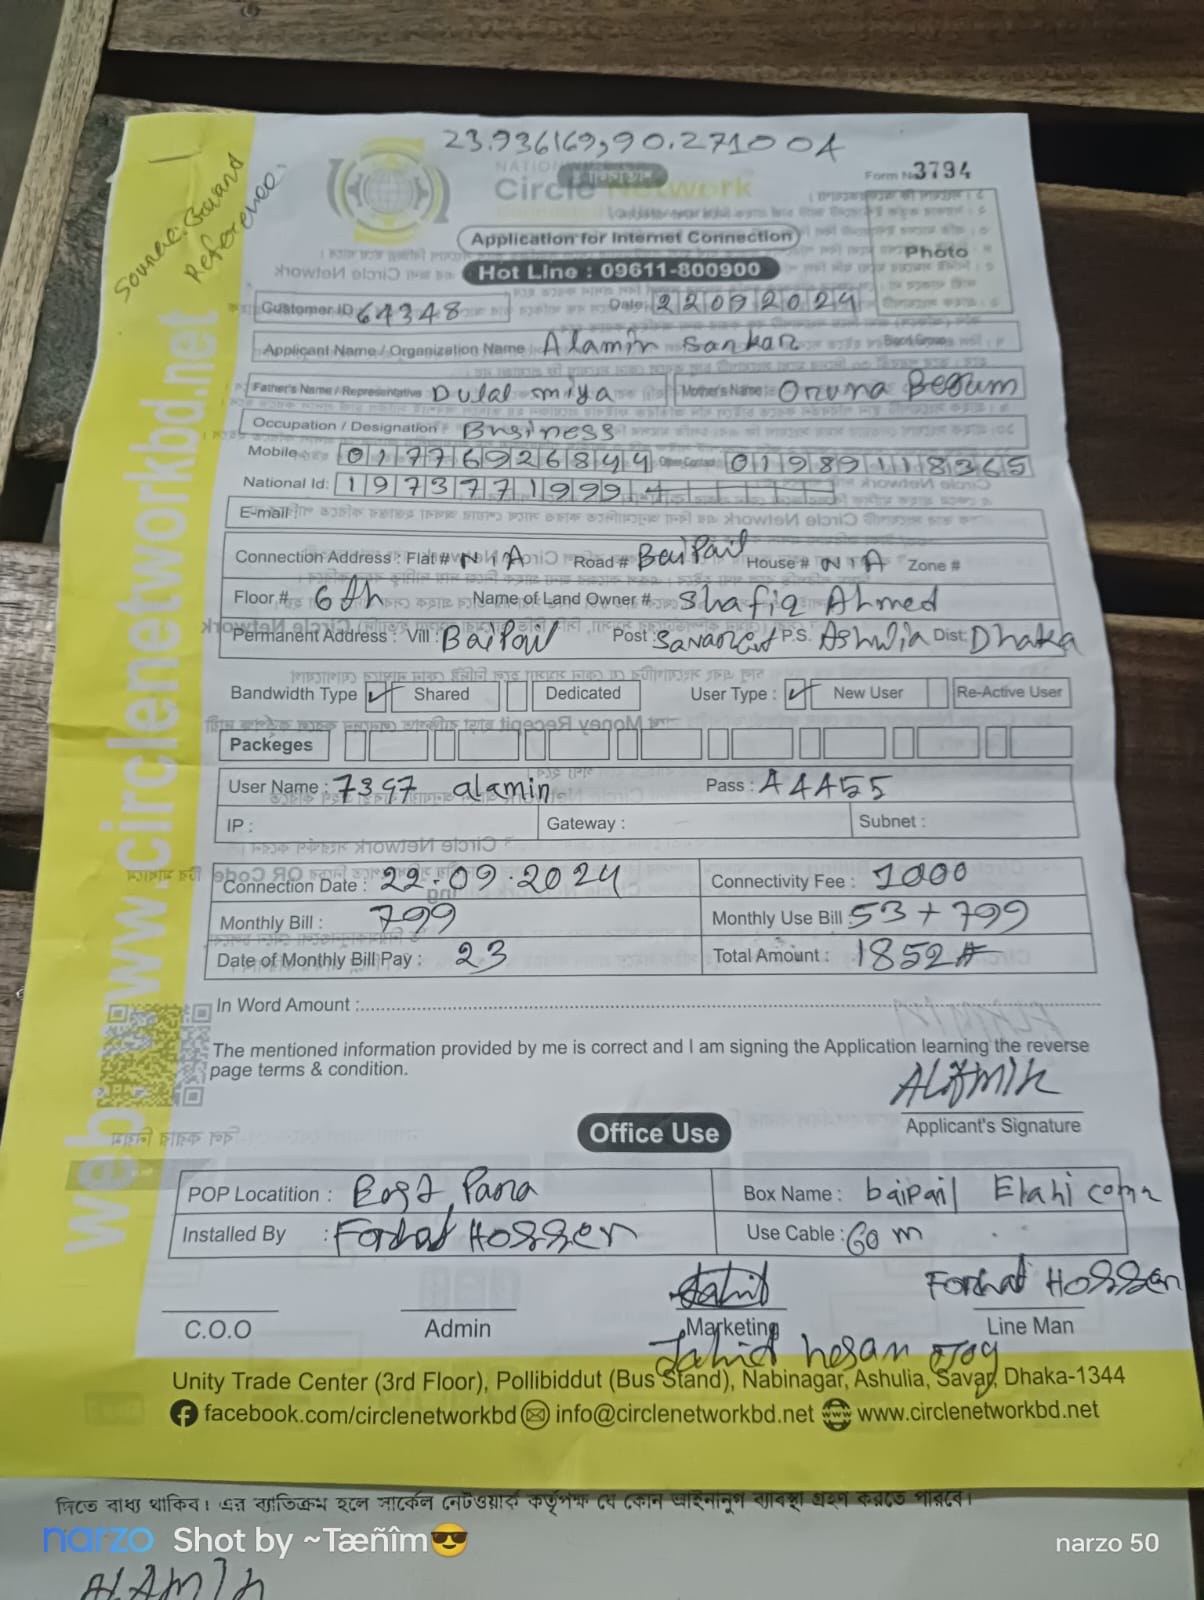 23.936169,90.271004
Source: Ground
Reference
Circle Network
Form No 3794
Application for Internet Connection
Photo
Hot Line : 09611-800900
Customer ID 64348 Date: 22092024
Applicant Name / Organization Name Alamin Sarkar Blood Group:
Father's Name / Representative Dulal miya Mother's Name: Oruna Begum
Occupation / Designation : Business
Mobile : 01776926844 Other Contact : 01989118365
National Id: 1973771999
E-mail :
Connection Address : Flat # N/A Road # BaiPail House # N/A Zone #
Floor # 6th Name of Land Owner # Shafiq Ahmed
Permanent Address : Vill : BaiPail Post : P.S. Ashulia Dist: Dhaka
Bandwidth Type ✓ Shared Dedicated User Type : ✓ New User Re-Active User
Packeges
User Name : 7397 alamin Pass : AAA55
IP : Gateway : Subnet :
Connection Date : 22.09.2024 Connectivity Fee : 1000
Monthly Bill : 799 Monthly Use Bill : 53 + 799
Date of Monthly Bill Pay : 23 Total Amount : 1852#
In Word Amount :
The mentioned information provided by me is correct and I am signing the Application learning the reverse
page terms & condition.
ALAMIN
Applicant's Signature
Office Use
POP Locatition : Para Box Name : baipail Elahi
Installed By : Forhad Hossen Use Cable : 60 m
Jahid Forhad Hossen
C.O.O Admin Marketing Line Man
Jahid hasan
Unity Trade Center (3rd Floor), Pollibiddut (Bus Stand), Nabinagar, Ashulia, Savar, Dhaka-1344
facebook.com/circlenetworkbd info@circlenetworkbd.net www.circlenetworkbd.net
web: www.circlenetworkbd.net
দিতে বাধ্য থাকিব। এর ব্যতিক্রম হলে সার্কেল নেটওয়ার্ক কর্তৃপক্ষ যে কোন আইনানুগ ব্যবস্থা গ্রহণ করতে পারবে।
narzo Shot by ~Tæñîm😎 narzo 50
ALAMIN